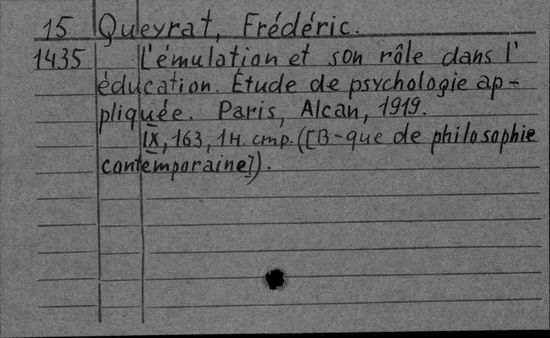 15 Queyrat, Frédéric.
1435 L'émulation et son rôle dans l'
éducation. Étude de psychologie ap-
pliquée. Paris, Alcan, 1919.
IX, 163, 1 н. стр. ([B-que de philosophie
contemporaine]).